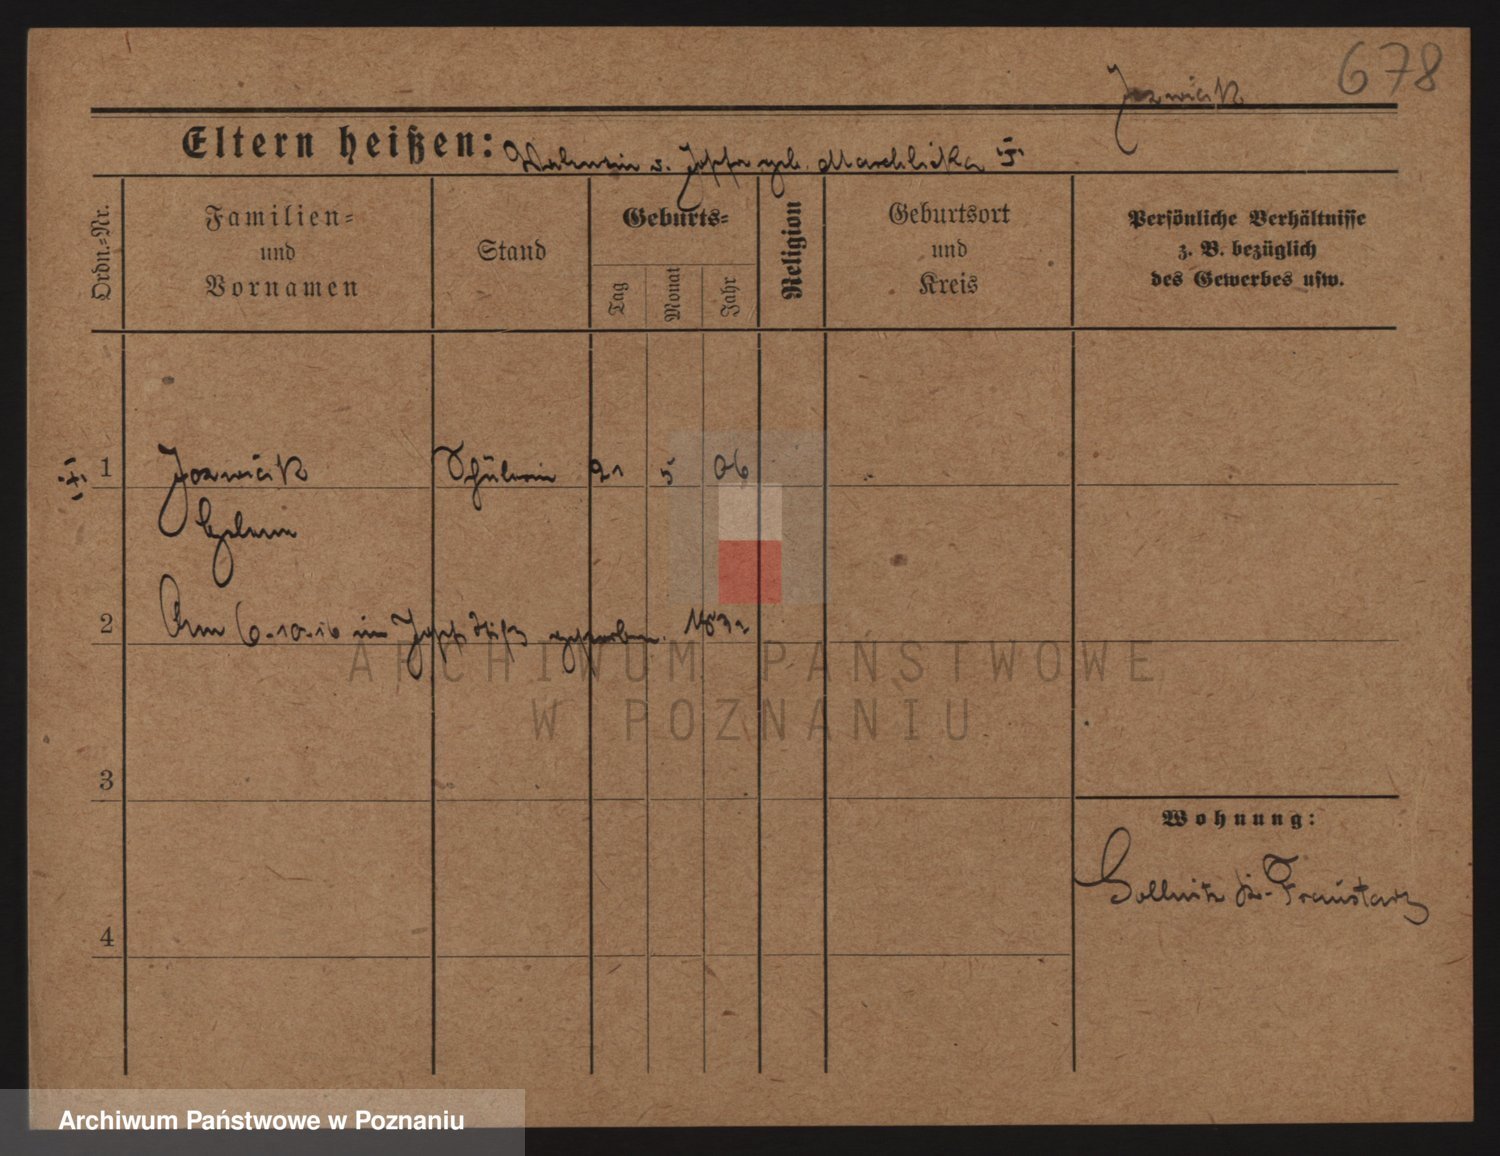 678
Jozwiak
Eltern heißen: Valentin u. Josefa geb. Marchlicka
Ordn.=Nr.
Familien=
und
Vornamen
Stand
Geburts=
Tag
Monat
Jahr
Religion
Geburtsort
und
Kreis
Persönliche Verhältnisse
z. B. bezüglich
des Gewerbes usw.
1 Jozwiak Schülerin 21 5 06
Helene
2 Am 6.10.16 im gestorben.
ARCHIWUM PAŃSTWOWE
W POZNANIU
3
Wohnung:
Gollmitz Kr. Fraustadt
4
Archiwum Państwowe w Poznaniu